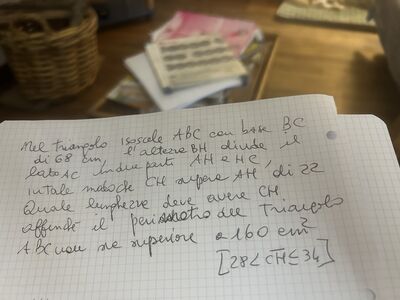 Nel Triangolo isoscele ABC con base BC
di 68 cm, l'altezza BH divide il
lato AC in due parti AH e HC,
in tale modo che CH supera AH, di 22
Quale lunghezza deve avere CH
affinché il perimetro del Triangolo
ABC non sia superiore a 160 cm²
[28 < CH ≤ 34]